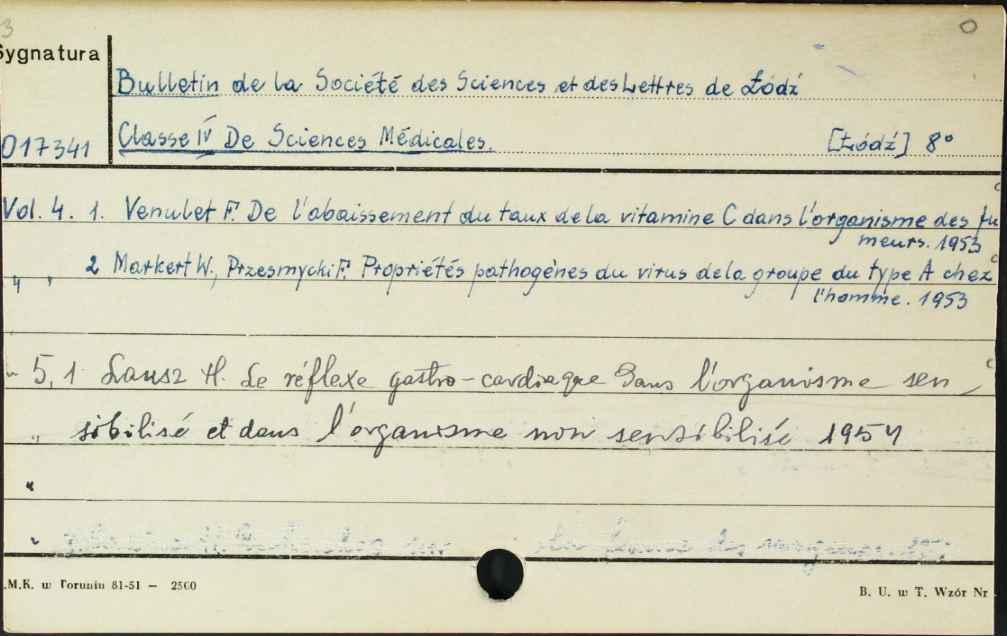 3
Sygnatura
Bulletin de la Société des Sciences et des Lettres de Łódź
017341 Classe IV De Sciences Médicales. [Łódź] 8°
Vol. 4. 1. Venulet F. De l'abaissement du taux de la vitamine C dans l'organisme des fu
meurs. 1953
" " 2 Markert W., Przesmycki F. Propriétés pathogènes du virus de la groupe du type A chez
l'homme. 1953
" 5, 1 Lausz H. Le réflexe gastro-cardiaque dans l'organisme sen
" sibilisé et dans l'organisme non sensibilisé 1954
"
"
.M.K. w Toruniu 81-51 — 2500 B. U. w T. Wzór Nr